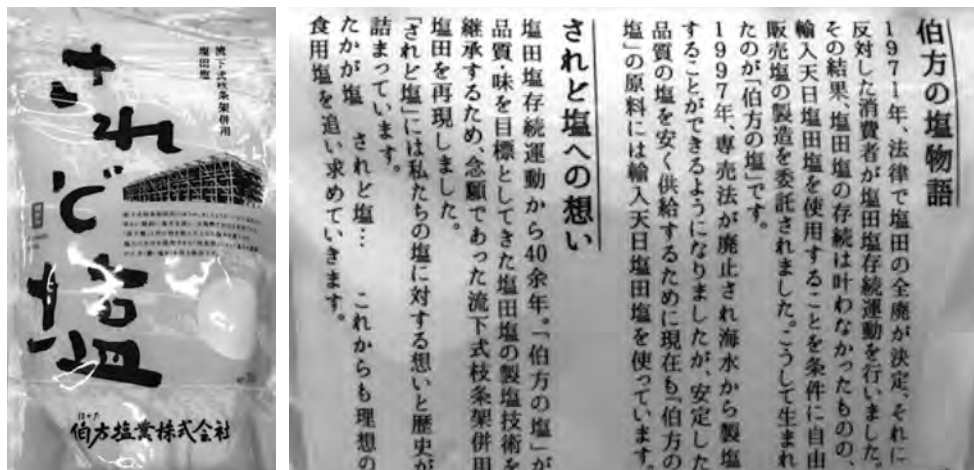 流下式枝条架併用
塩田塩
されど塩
はかた
伯方塩業株式会社
伯方の塩物語
1971年、法律で塩田の全廃が決定、それに
反対した消費者が塩田塩存続運動を行いました。
その結果、塩田塩の存続は叶わなかったものの、
輸入天日塩田塩を使用することを条件に自由
販売塩の製造を委託されました。こうして生まれ
たのが「伯方の塩」です。
1997年、専売法が廃止され海水から製塩
することができるようになりましたが、安定した
品質の塩を安く供給するために現在も「伯方の
塩」の原料には輸入天日塩田塩を使っています。
されど塩への想い
塩田塩存続運動から40余年。「伯方の塩」が
品質、味を目標としてきた塩田塩の製塩技術を
継承するため、念願であった流下式枝条架併用
塩田を再現しました。
「されど塩」には私たちの塩に対する想いと歴史が
詰まっています。
たかが塩 されど塩… これからも理想の
食用塩を追い求めていきます。